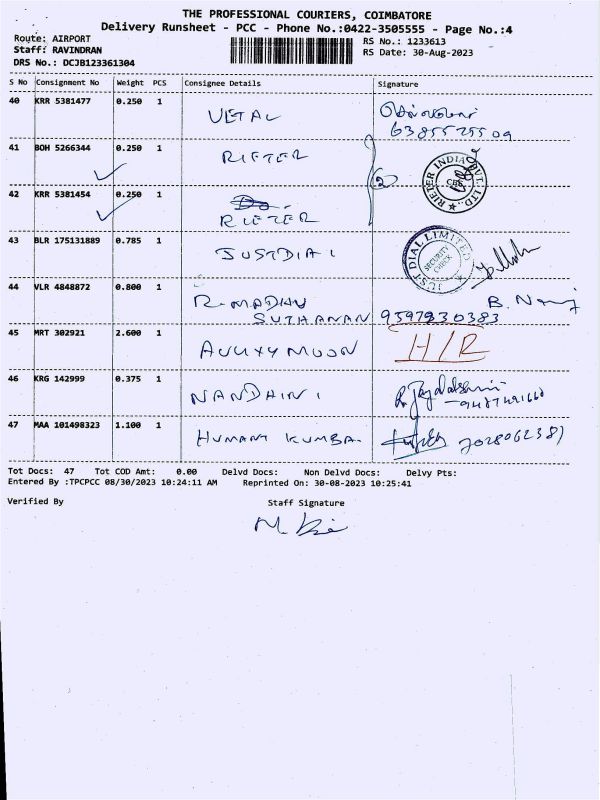 THE PROFESSIONAL COURIERS, COIMBATORE
Delivery Runsheet - PCC - Phone No.:0422-3505555 - Page No.:4
Route: AIRPORT
RS No.: 1233613
Staff: RAVINDRAN
RS Date: 30-Aug-2023
DRS No.: DCJB123361304
S No Consignment No Weight PCS Consignee Details Signature
40 KRR 5381477 0.250 1 VETAL
6385525509
41 BOH 5266344 0.250 1 RIETER
2 RIETER INDIA PVT. LTD.
42 KRR 5381454 0.250 1
RIETER
43 BLR 175131889 0.785 1 JUSTDIAL
JUST DIAL LIMITED SECURITY CHECK
44 VLR 4848872 0.800 1 R-MADHU
SUTHANAN 9597230383
45 MRT 302921 2.600 1 H/R
MOON
46 KRG 142999 0.375 1 NANDHINI
47 MAA 101498323 1.100 1 HUMANT KUMBA. 7028062381
Tot Docs: 47 Tot COD Amt: 0.00 Delvd Docs: Non Delvd Docs: Delvy Pts:
Entered By :TPCPCC 08/30/2023 10:24:11 AM Reprinted On: 30-08-2023 10:25:41
Verified By Staff Signature